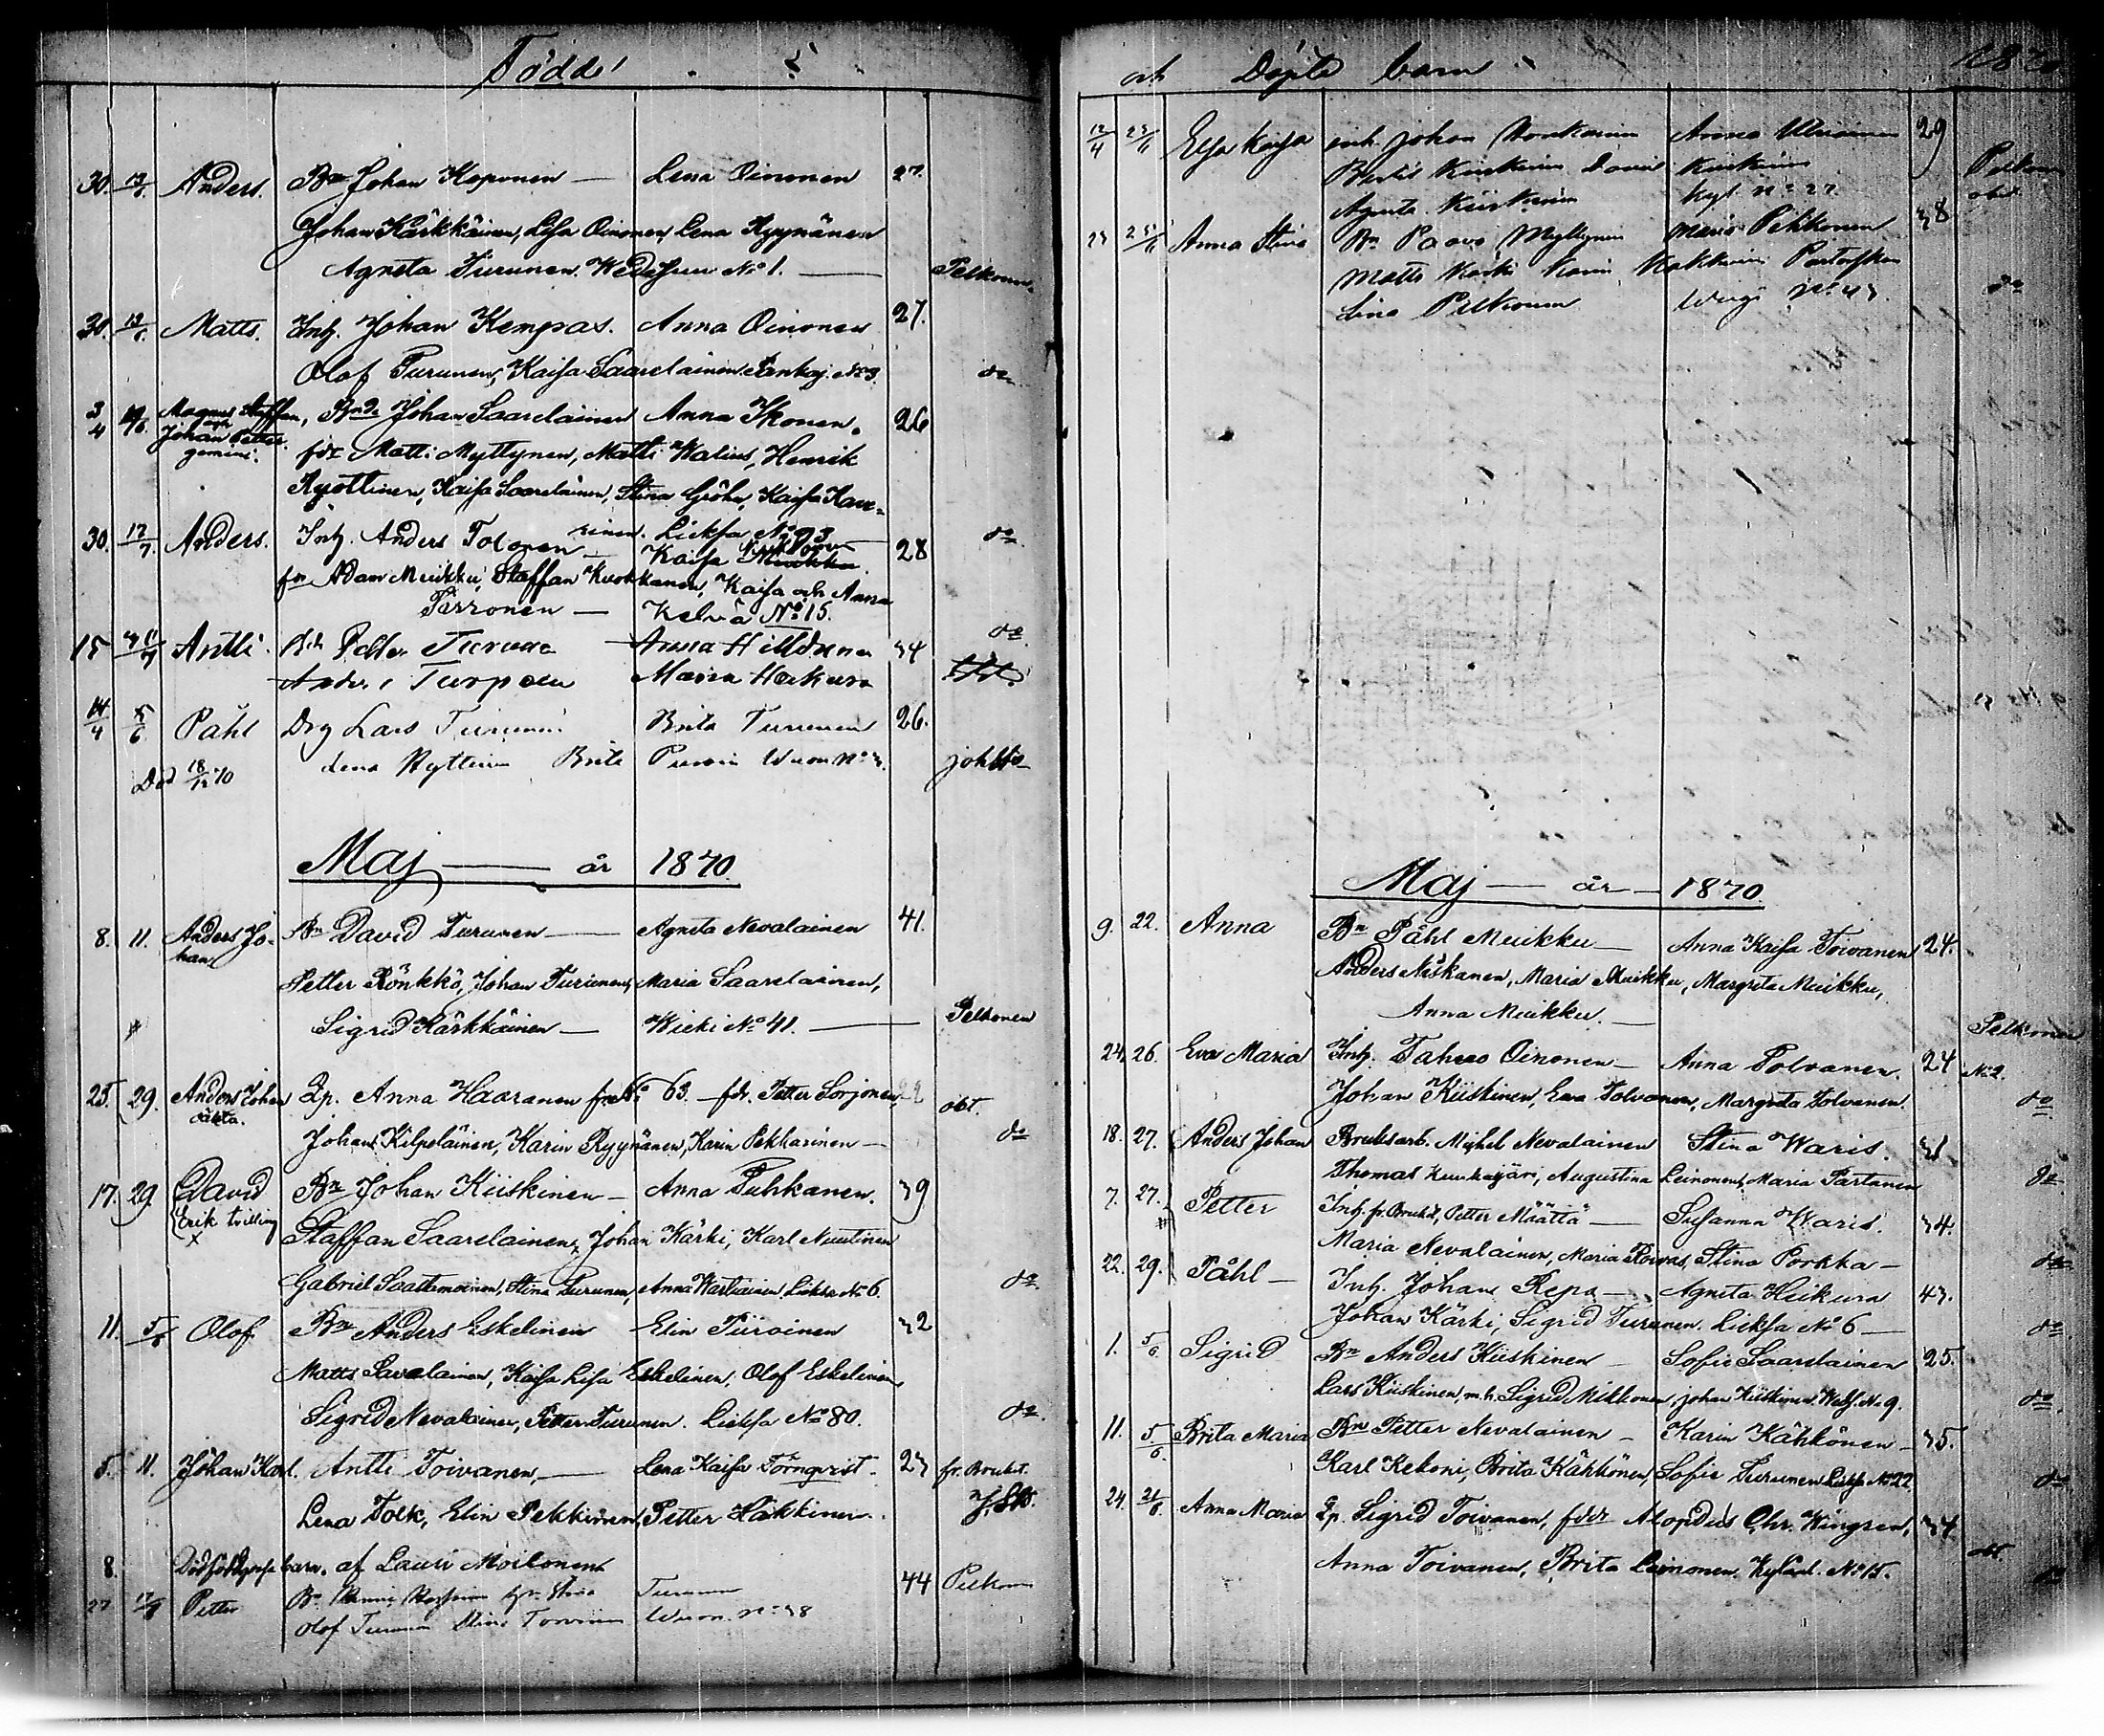 Födde
30. Anders. Bn Johan Koponen — Lena Oinonen 27.
Johan Kärkkäinen, Lisa Oinonen, Lena Ryynänen
Agneta Turunen. No 1. — Pelkonen
30. Matts. Inh. Johan Kempas. Anna Oinonen 27.
Olof Turunen, Kaisa Saarelainen No 3. do
3/4 Magnus Staffan, Bnde Johan Saarelainen Anna Ikonen. 26
och Johan Petter gemini.
fdr Matti Myttynen, Matti Walius, Henrik
Ryöttinen, Kaisa Saarelainen, Stina Gröhn, Kaisa Kau=
rinen. Lieksa No 93 do
30. 12/7. Anders. Inh. Anders Tolonen Kaisa 28
fdr Adam Muikku, Staffan Kuokkanen, Kaisa och Anna
Parronen — Kelvä No 15. do
15 Antti. Petter Turunen Anna 34
Anders Turpoin Maria Heikura
14/4 5/6 Påhl Drg Lars Turunen Brita Turunen 26.
Lena Ryttinen Brita
Död 18/12 70
Maj — år 1870.
8. 11. Anders Jo-
han Bn David Turunen — Agneta Nevalainen 41.
Petter Rönkkö, Johan Turunen, Maria Saarelainen,
Sigrid Kärkkäinen — Wieki No 41. — Pelkonen
25. 29. Anders Johan
oäkta. Qp. Anna Haaranen fr. No 63. — fdr. Petter Sorjonen, obt.
Johan Kilpeläinen, Karin Ryynänen, Karin Pekkarinen — do
17. 29. David
Erik tvilling Bn Johan Kiiskinen — Anna Puhkanen. 39
Staffan Saarelainen, Johan Kärki, Karl Nuutinen
Gabriel Saastamoinen, Stina Turunen, Anna Wartiainen. Lieksa No 6. do
11. 5/6 Olof Bn Anders Eskelinen Elin Piiroinen 32
Matts Savolainen, Kaisa Lisa Eskelinen, Olof Eskelinen
Sigrid Nevalainen, Petter Turunen. Lieksa No 80. do.
5. 11. Johan Karl. Antti Toivanen, — Lena Kaisa Törnqvist. 23 fr. Brukt.
Lena Tolk, Elin Pekkinen, Petter Häkkinen.
8. Dödfödt barn. af Lauri Moilonen
27 12/6 Petter Turunen 44 Pelkonen
Olof Turunen Stina
och Döpte barn 1870
12/4 Elsa Kaisa inh. Johan Anna 29
Bertil Kiiskinen David Kiiskinen Pelkonen
Agneta Kiiskinen Kyl No 27. obt.
23 Anna Stina Bn Paavo Myllynen Maria Pehkonen 38
Matts Karki Karin
Lena Pelkonen No 43. do
Maj — år — 1870.
9. 22. Anna Bn Påhl Muikku — Anna Kaisa Toivanen 24.
Anders Niskanen, Maria Muikku, Margreta Muikku,
Anna Muikku. — Pelkonen
24. 26. Eva Maria Inh. Tahvo Oinonen — Anna Polvanen. 24 No 2.
Johan Kiiskinen, Eva Tolvanen, Margreta Tolvanen. do
18. 27. Anders Johan Bruksarb. Michel Nevalainen Stina Waris. 31
Thomas, Augustina Leinonen, Maria Partanen do
7. 27. Petter Inh. fr. Bruket, Petter Määttä — Susanna Waris. 34.
Maria Nevalainen, Maria, Stina Porkka — do
22. 29. Påhl — Inh. Johan Repa — Agneta Heikura 43.
Johan Kärki, Sigrid Turunen. Lieksa No 6 — do
1. 5/6 Sigrid Bn Anders Kiiskinen — Sofie Saarelainen 25.
Lars Kiiskinen, m.h. Sigrid Mikkonen, Johan Kiiskinen No 9. do.
11. 5/6. Brita Maria Bn Petter Nevalainen — Karin Kähkönen — 35.
Karl Kekoni, Brita Kähkönen, Sofie Turunen Lieksa No 22. do
24. Anna Maria Qp. Sigrid Toivanen, fddr Chr. Wingren, 34.
Anna Toivanen, Brita Leinonen. No 15. do